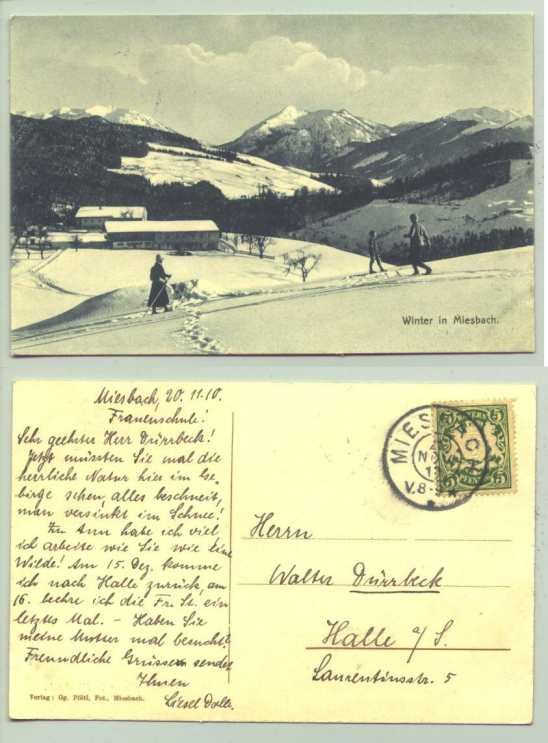 Winter in Miesbach.
Miesbach, 20.11.10.
Frauenschule!
Sehr geehrter Herr Dürrbeck!
Jetzt müssten Sie mal die
herrliche Natur hier im Ge-
birge sehen, alles beschneit,
man versinkt im Schnee!
Zu tun habe ich viel
ich arbeite wie Sie wie eine
Wilde! Am 15. Dez. komme
ich nach Halle zurück, am
16. ich die Fr. St. ein
letztes Mal. - Haben Sie
meine Mutter mal besucht?
Freundliche Grüsse sendet
Ihnen
Liesel
Verlag: Gg. Pöltl, Fot., Miesbach.
MIESBACH
NOV
V.8-9
BAYERN
5 5
PFENNIG
Herrn
Walter Dürrbeck
Halle a/S.
Laurentiusstr. 5